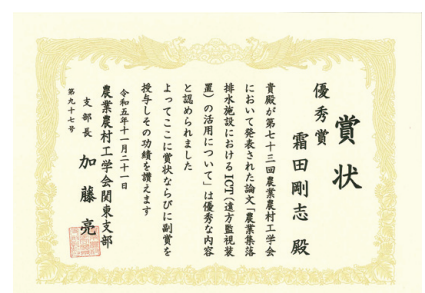 賞状
優秀賞
霜田剛志 殿
貴殿が第七十三回農業農村工学会
において発表された論文「農業集落
排水施設におけるICT(遠方監視装
置)の活用について」は優秀な内容
と認められました
よってここに賞状ならびに副賞を
授与しその功績を讃えます
令和五年十一月二十一日
農業農村工学会関東支部
支部長 加藤 亮
第九十七号